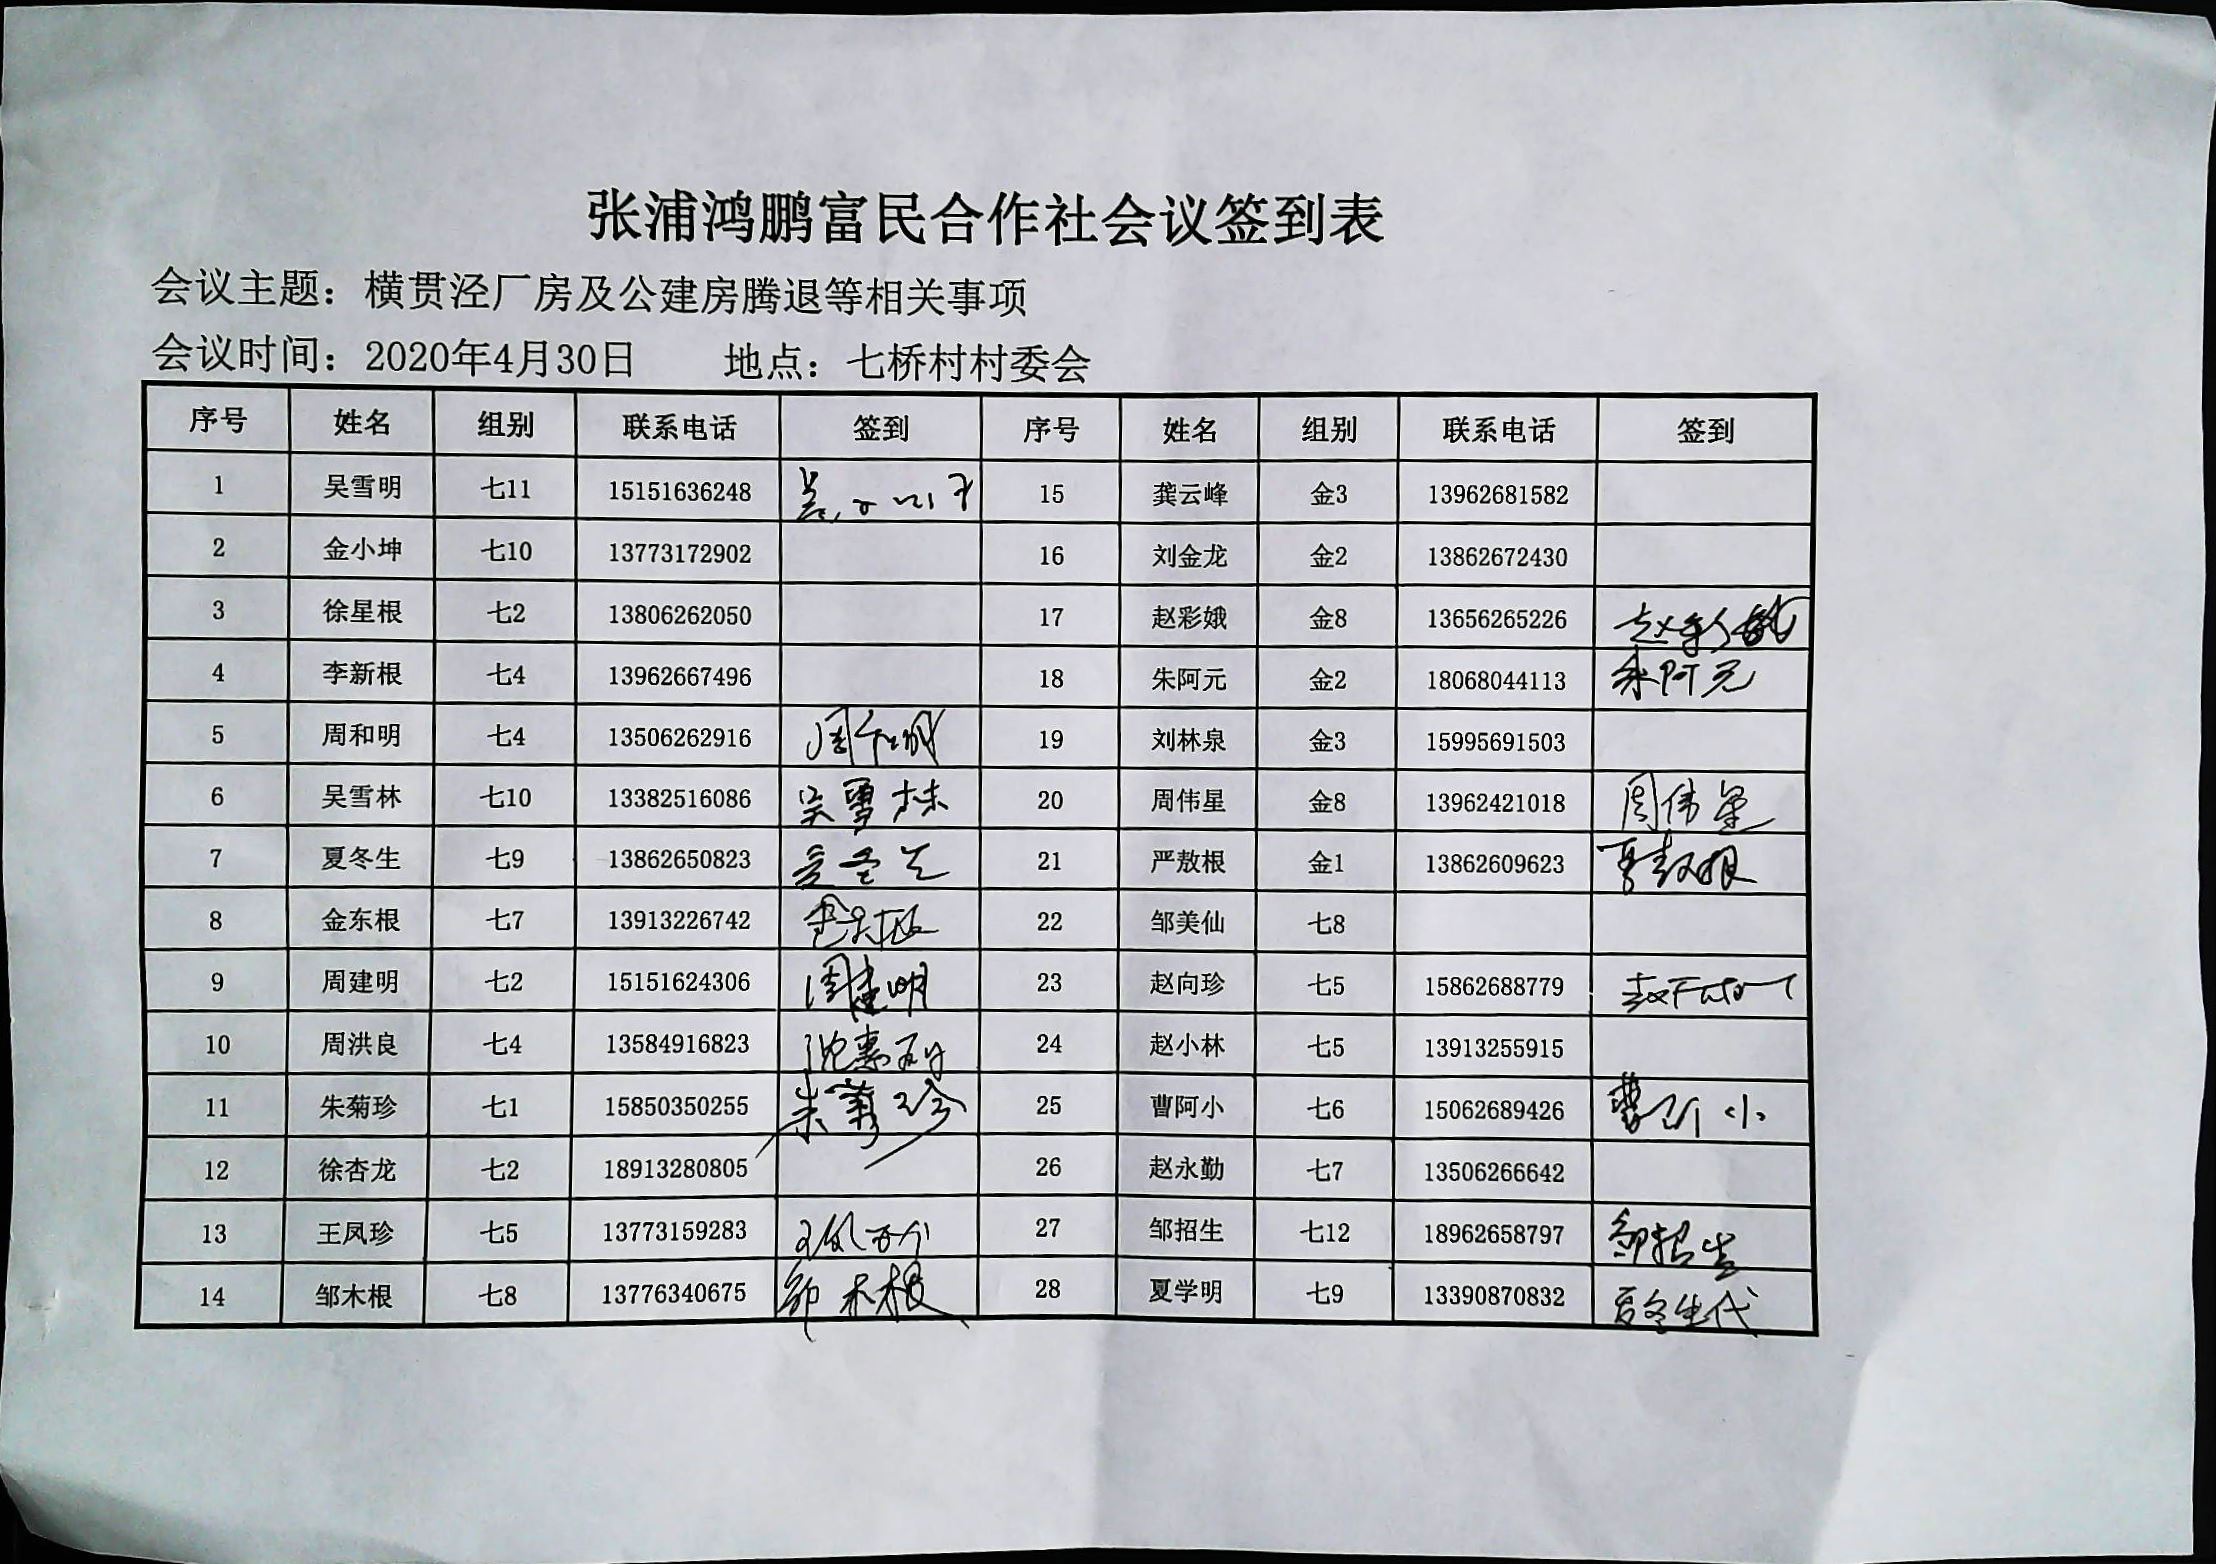 张浦鸿鹏富民合作社会议签到表
会议主题：横贯泾厂房及公建房腾退等相关事项
会议时间：2020年4月30日 地点：七桥村村委会
序号 姓名 组别 联系电话 签到 序号 姓名 组别 联系电话 签到
1 吴雪明 七11 15151636248 15 龚云峰 金3 13962681582
2 金小坤 七10 13773172902 16 刘金龙 金2 13862672430
3 徐星根 七2 13806262050 17 赵彩娥 金8 13656265226 赵彩娥
4 李新根 七4 13962667496 18 朱阿元 金2 18068044113 朱阿元
5 周和明 七4 13506262916 周和明 19 刘林泉 金3 15995691503
6 吴雪林 七10 13382516086 吴雪林 20 周伟星 金8 13962421018 周伟星
7 夏冬生 七9 13862650823 夏冬生 21 严敖根 金1 13862609623 严敖根
8 金东根 七7 13913226742 金东根 22 邹美仙 七8
9 周建明 七2 15151624306 周建明 23 赵向珍 七5 15862688779
10 周洪良 七4 13584916823 24 赵小林 七5 13913255915
11 朱菊珍 七1 15850350255 朱菊珍 25 曹阿小 七6 15062689426 曹阿小
12 徐杏龙 七2 18913280805 26 赵永勤 七7 13506266642
13 王凤珍 七5 13773159283 王凤珍 27 邹招生 七12 18962658797 邹招生
14 邹木根 七8 13776340675 邹木根 28 夏学明 七9 13390870832 夏冬生代